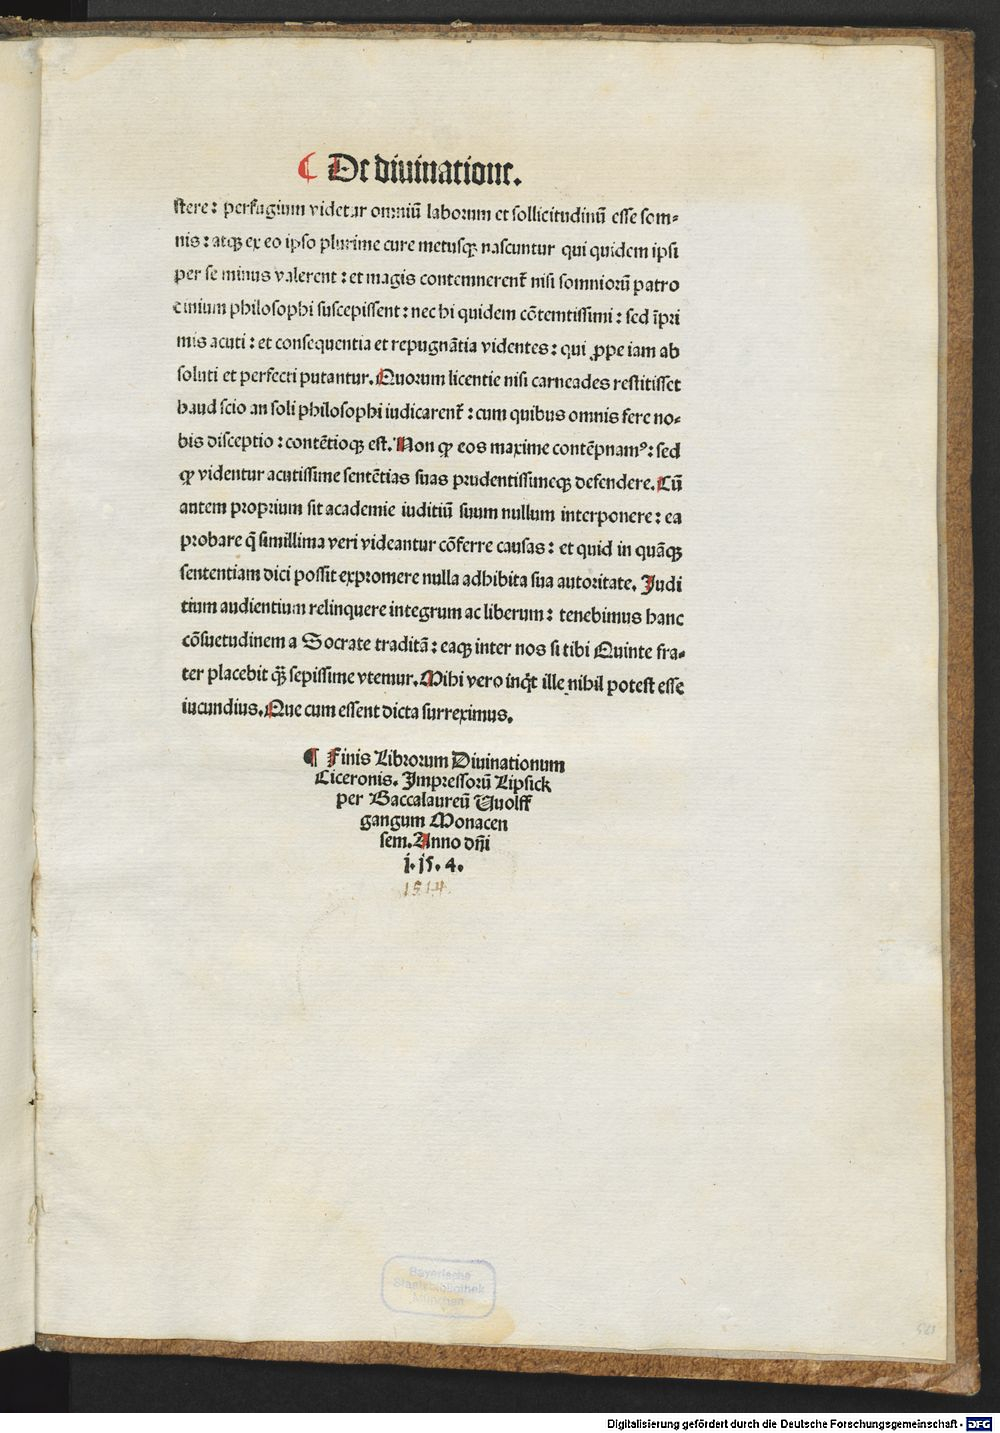 ¶ De diuinatione.
stere: perfugium videtur omniū laborum et sollicitudinū esse som⸗
nis: atqꝫ ex eo ipso plurime cure metusqꝫ nascuntur qui quidem ipsi
per se minus valerent: et magis contemnerent̄ nisi somniorū patro
cinium philosophi suscepissent: nec hi quidem cōtemtissimi: sed ĩpri
mis acuti: et consequentia et repugnātia videntes: qui ꝓpe iam ab
soluti et perfecti putantur. Quorum licentie nisi carneades restitisset
haud scio an soli philosophi iudicarent̄: cum quibus omnis fere no⸗
bis disceptio: contētioqꝫ est. Non ꝙ eos maxime contēpnamꝰ: sed
ꝙ videntur acutissime sentētias suas prudentissimeqꝫ defendere. Cū
autem proprium sit academie iuditiū suum nullum interponere: ea
probare q̄ simillima veri videantur cōferre causas: et quid in quāqꝫ
sententiam dici possit expromere nulla adhibita sua autoritate. Judi
tium audientium relinquere integrum ac liberum: tenebimus hanc
cōsuetudinem a Socrate traditā: eaqꝫ inter nos si tibi Quinte fra⸗
ter placebit q̄ꝫ sepissime vtemur. Mihi vero inq̄t ille nihil potest esse
iucundius. Que cum essent dicta surreximus.
¶ Finis Librorum Diuinationum
Ciceronis. Impressorū Lipsick
per Baccalaureū Vuolff
gangum Monacen
sem. Anno dn̄i
j. j5. 4.
1514.
Bayerische
Staatsbibliothek
München
Digitalisierung gefördert durch die Deutsche Forschungsgemeinschaft - DFG